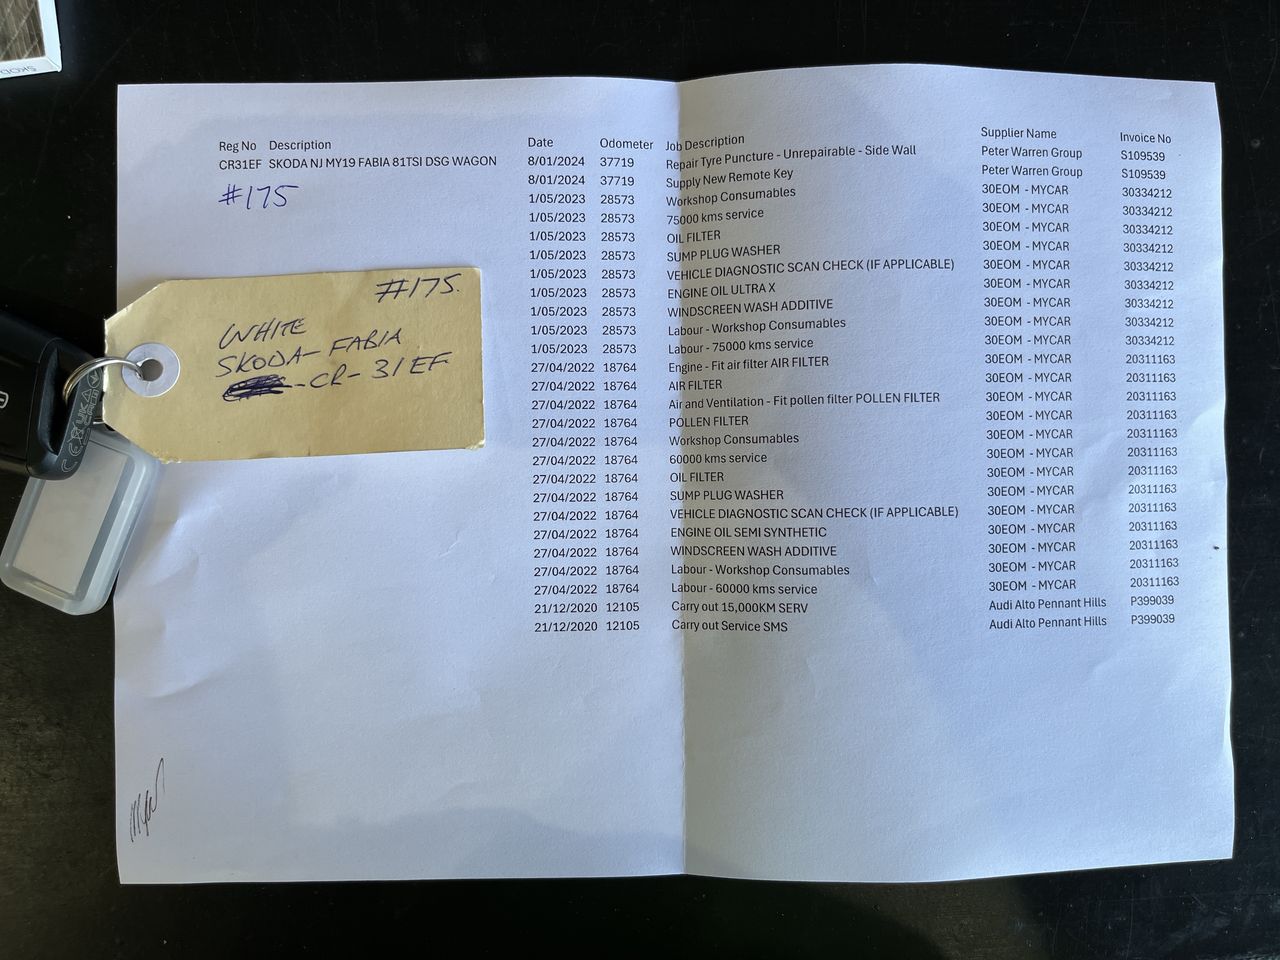 SKODA
Reg No Description Date Odometer Job Description Supplier Name Invoice No
CR31EF SKODA NJ MY19 FABIA 81TSI DSG WAGON 8/01/2024 37719 Repair Tyre Puncture - Unrepairable - Side Wall Peter Warren Group S109539
8/01/2024 37719 Supply New Remote Key Peter Warren Group S109539
#175
1/05/2023 28573 Workshop Consumables 30EOM - MYCAR 30334212
1/05/2023 28573 75000 kms service 30EOM - MYCAR 30334212
1/05/2023 28573 OIL FILTER 30EOM - MYCAR 30334212
1/05/2023 28573 SUMP PLUG WASHER 30EOM - MYCAR 30334212
1/05/2023 28573 VEHICLE DIAGNOSTIC SCAN CHECK (IF APPLICABLE) 30EOM - MYCAR 30334212
1/05/2023 28573 ENGINE OIL ULTRA X 30EOM - MYCAR 30334212
1/05/2023 28573 WINDSCREEN WASH ADDITIVE 30EOM - MYCAR 30334212
1/05/2023 28573 Labour - Workshop Consumables 30EOM - MYCAR 30334212
1/05/2023 28573 Labour - 75000 kms service 30EOM - MYCAR 30334212
27/04/2022 18764 Engine - Fit air filter AIR FILTER 30EOM - MYCAR 20311163
27/04/2022 18764 AIR FILTER 30EOM - MYCAR 20311163
27/04/2022 18764 Air and Ventilation - Fit pollen filter POLLEN FILTER 30EOM - MYCAR 20311163
27/04/2022 18764 POLLEN FILTER 30EOM - MYCAR 20311163
27/04/2022 18764 Workshop Consumables 30EOM - MYCAR 20311163
27/04/2022 18764 60000 kms service 30EOM - MYCAR 20311163
27/04/2022 18764 OIL FILTER 30EOM - MYCAR 20311163
27/04/2022 18764 SUMP PLUG WASHER 30EOM - MYCAR 20311163
27/04/2022 18764 VEHICLE DIAGNOSTIC SCAN CHECK (IF APPLICABLE) 30EOM - MYCAR 20311163
27/04/2022 18764 ENGINE OIL SEMI SYNTHETIC 30EOM - MYCAR 20311163
27/04/2022 18764 WINDSCREEN WASH ADDITIVE 30EOM - MYCAR 20311163
27/04/2022 18764 Labour - Workshop Consumables 30EOM - MYCAR 20311163
27/04/2022 18764 Labour - 60000 kms service 30EOM - MYCAR 20311163
21/12/2020 12105 Carry out 15,000KM SERV Audi Alto Pennant Hills P399039
21/12/2020 12105 Carry out Service SMS Audi Alto Pennant Hills P399039
#175.
WHITE
SKODA - FABIA
-CR-31EF